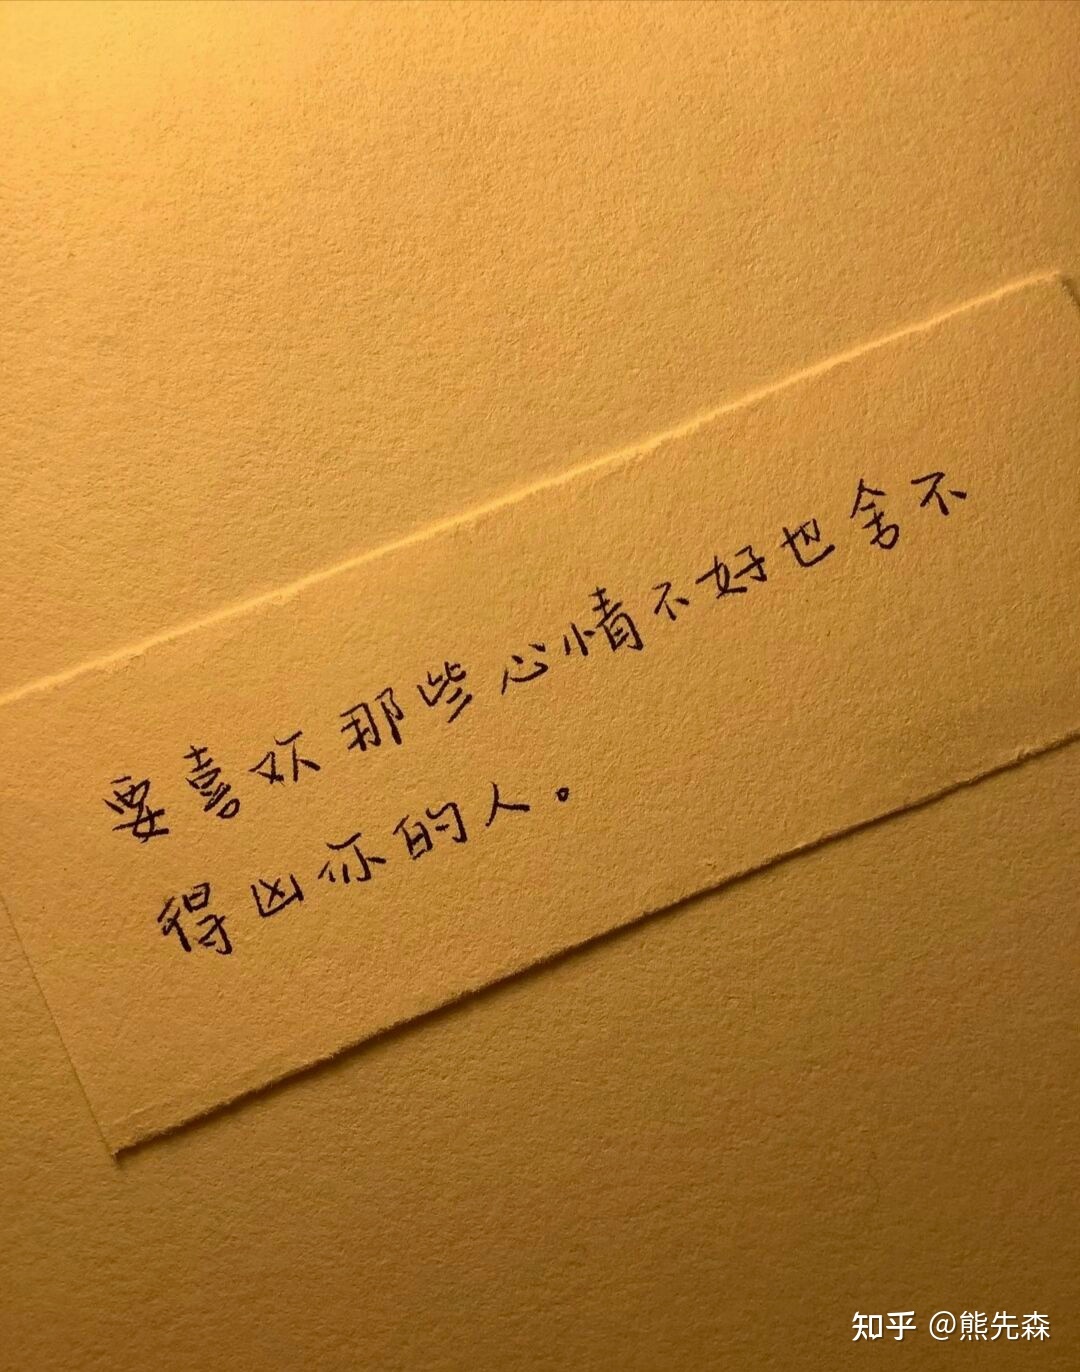 要喜欢那些心情不好也舍不
得凶你的人。
知乎 @熊先森